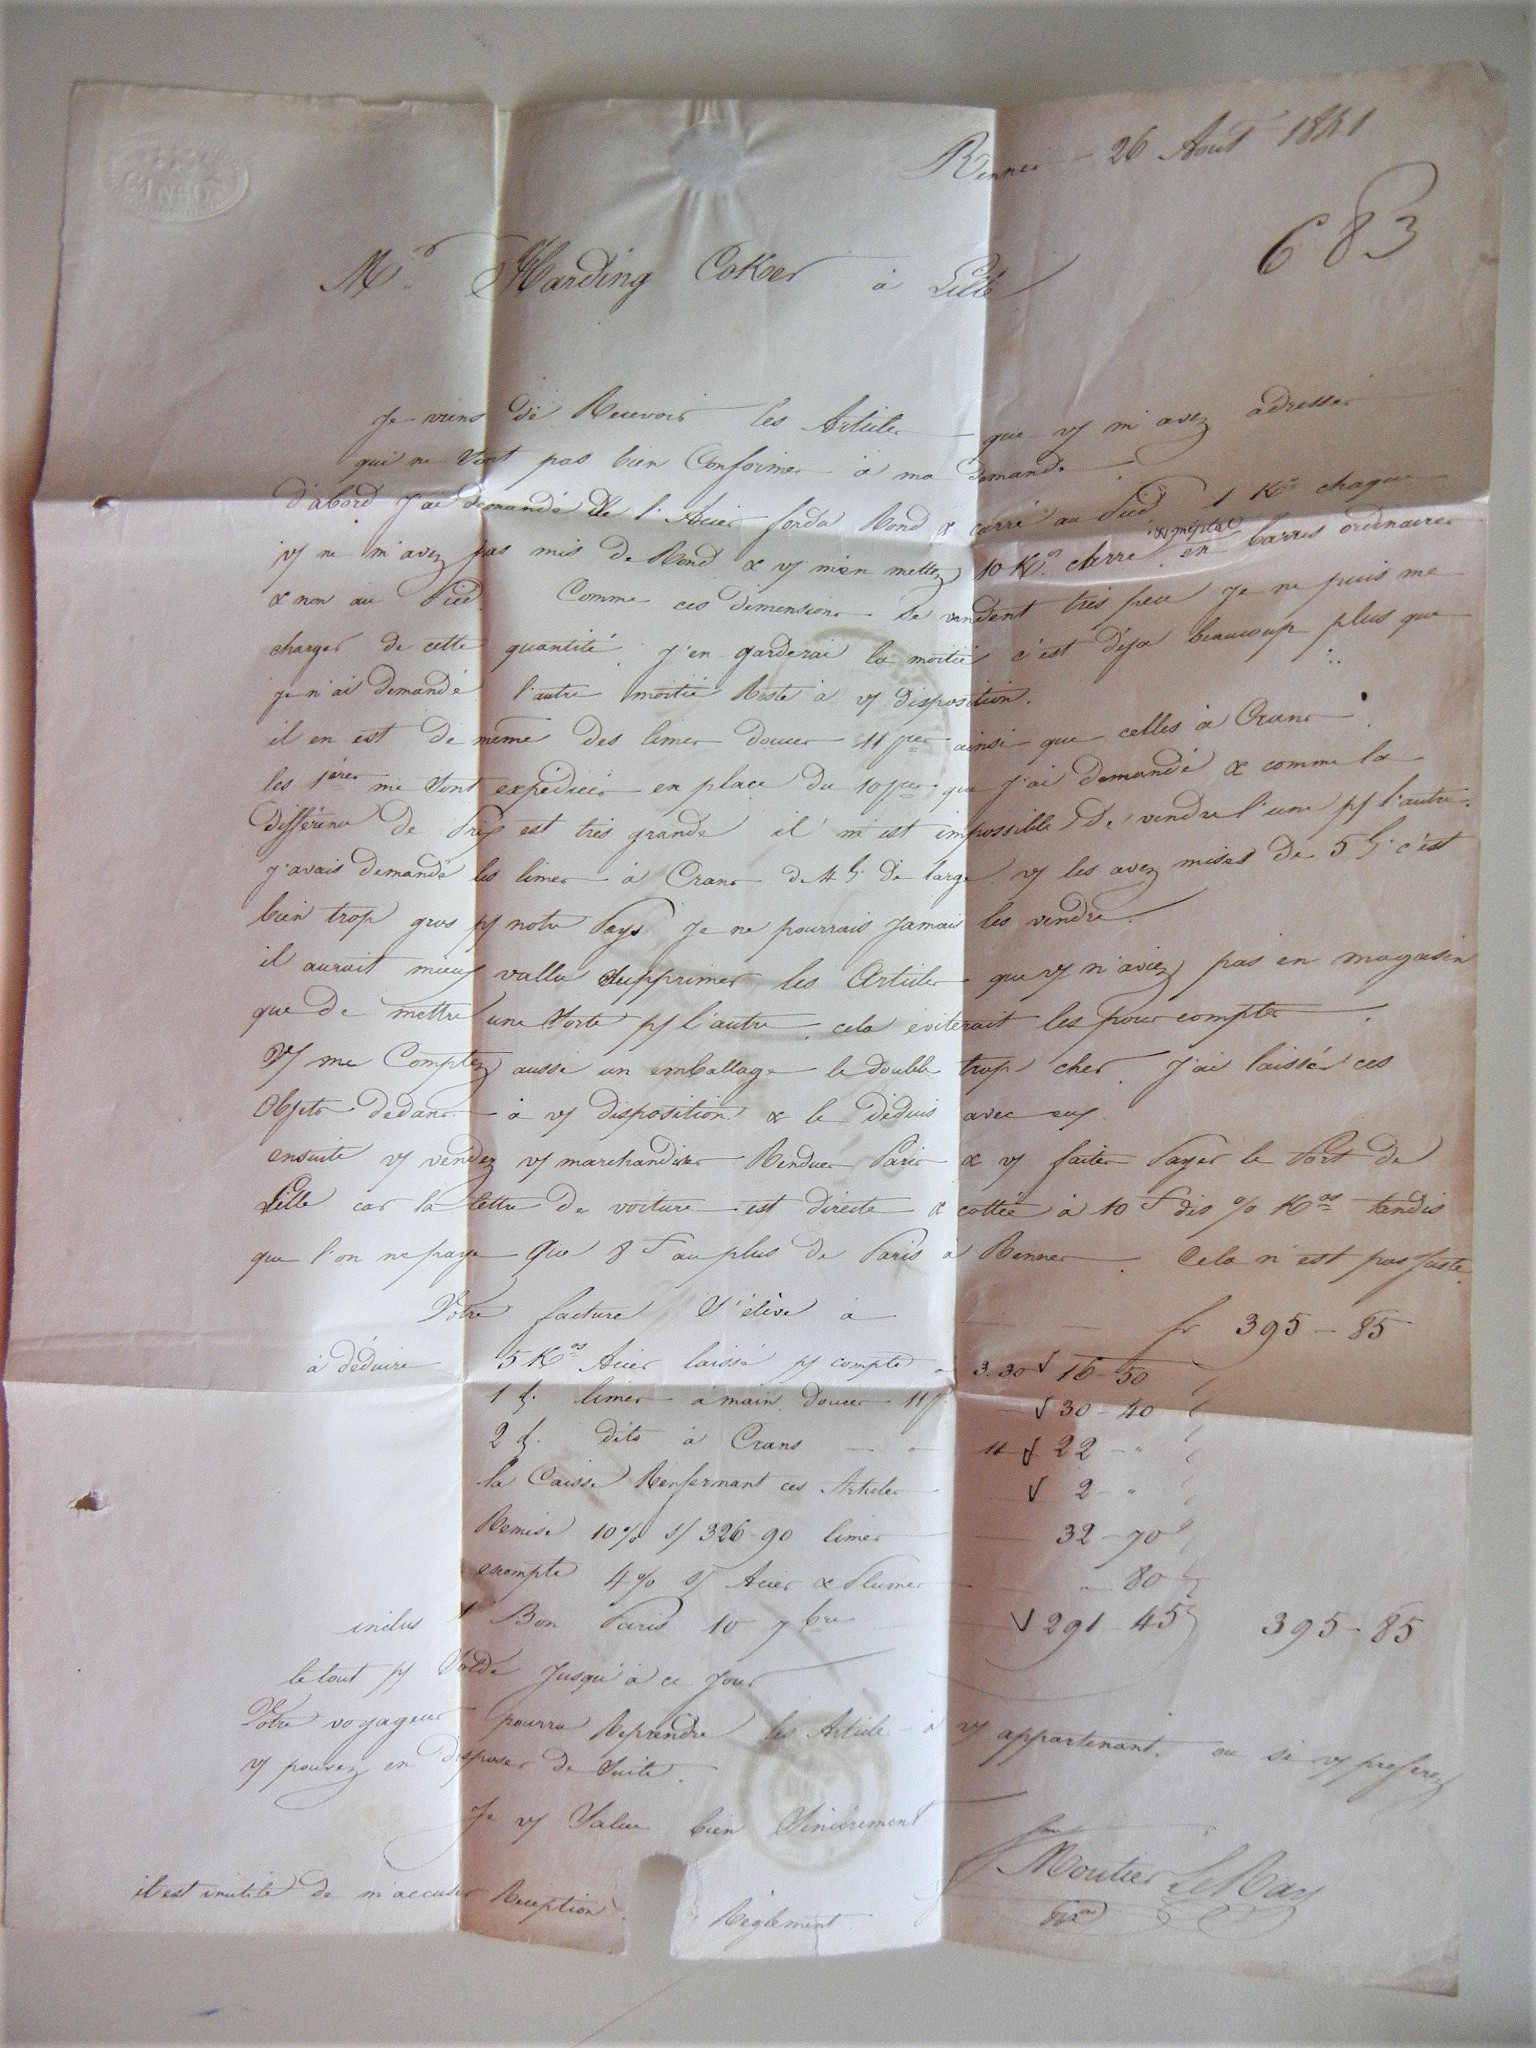 Rennes - 26 Août 1841
683
Mrs Harding Coker à Lille
Je viens de Recevoir les Articles que v/ m'avez adresser
qui ne sont pas bien Conformes à ma demande
D'abord J'ai demandé de l'Acier fondu Rond & carré au Pied 1 Kos chaque
v/ ne m'avez pas mis de Rond & v/ m'en mettez 10 Kos en barres ordinaires
& non au Pied. Comme ces dimensions se vendent très peu Je ne puis me
charger de cette quantité. J'en garderai la moitié c'est déja beaucoup plus que
je n'ai demandé l'autre moitié Reste à v/ disposition.
il en est de même des limes douces 11 pces ainsi que celles à Crans.
les 1ères me sont expédiées en place du 10 pces que J'ai demandé & comme la
différence de Prix est très grande il m'est impossible de vendre l'une p/ l'autre.
J'avais demandé les limes à Crans de 4 l. de large v/ les avez mises de 5 l. c'est
bien trop gros p/ notre Pays Je ne pourrais Jamais les vendre.
il aurait mieux vallu supprimer les Articles que v/ n'aviez pas en magasin
que de mettre une sorte p/ l'autre, cela éviterait les pour comptes.
V/ me Comptez aussi un emballage le double trop cher. J'ai laissé ces
Objets dedans à v/ disposition & le déduis avec eux.
ensuite v/ vendez v/ marchandises Rendues Paris & v/ faites Payer le Port de
Lille car la lettre de voiture est directe & cottée à 10 F dis % Kos tandis
que l'on ne paye que 8 F au plus de Paris à Rennes. Cela n'est pas Juste.
Votre facture s'élève à fr 395-85
à déduire 5 Kos Acier laissé p/ compte à 3.30 16-50
1 d. limes à main douces 11 p. 30-40
2 d. dito à Crans 11 22-"
la Caisse Renfermant ces Articles 2-"
Remise 10% s/ 326-90 limes 32-70
escompte 4% s/ Acier & Plumes " 80
inclus 1 Bon Paris 10 7bre 291-45 395-85
le tout p/ Solde Jusqu'à ce Jour
Votre voyageur pourra Reprendre les Article à v/ appartenant. ou si v/ preferez
v/ pouvez en disposer de suite.
Je v/ Salue bien Sincérement
Moutier LeRay
il est inutile de m'accuser Réception
Règlement